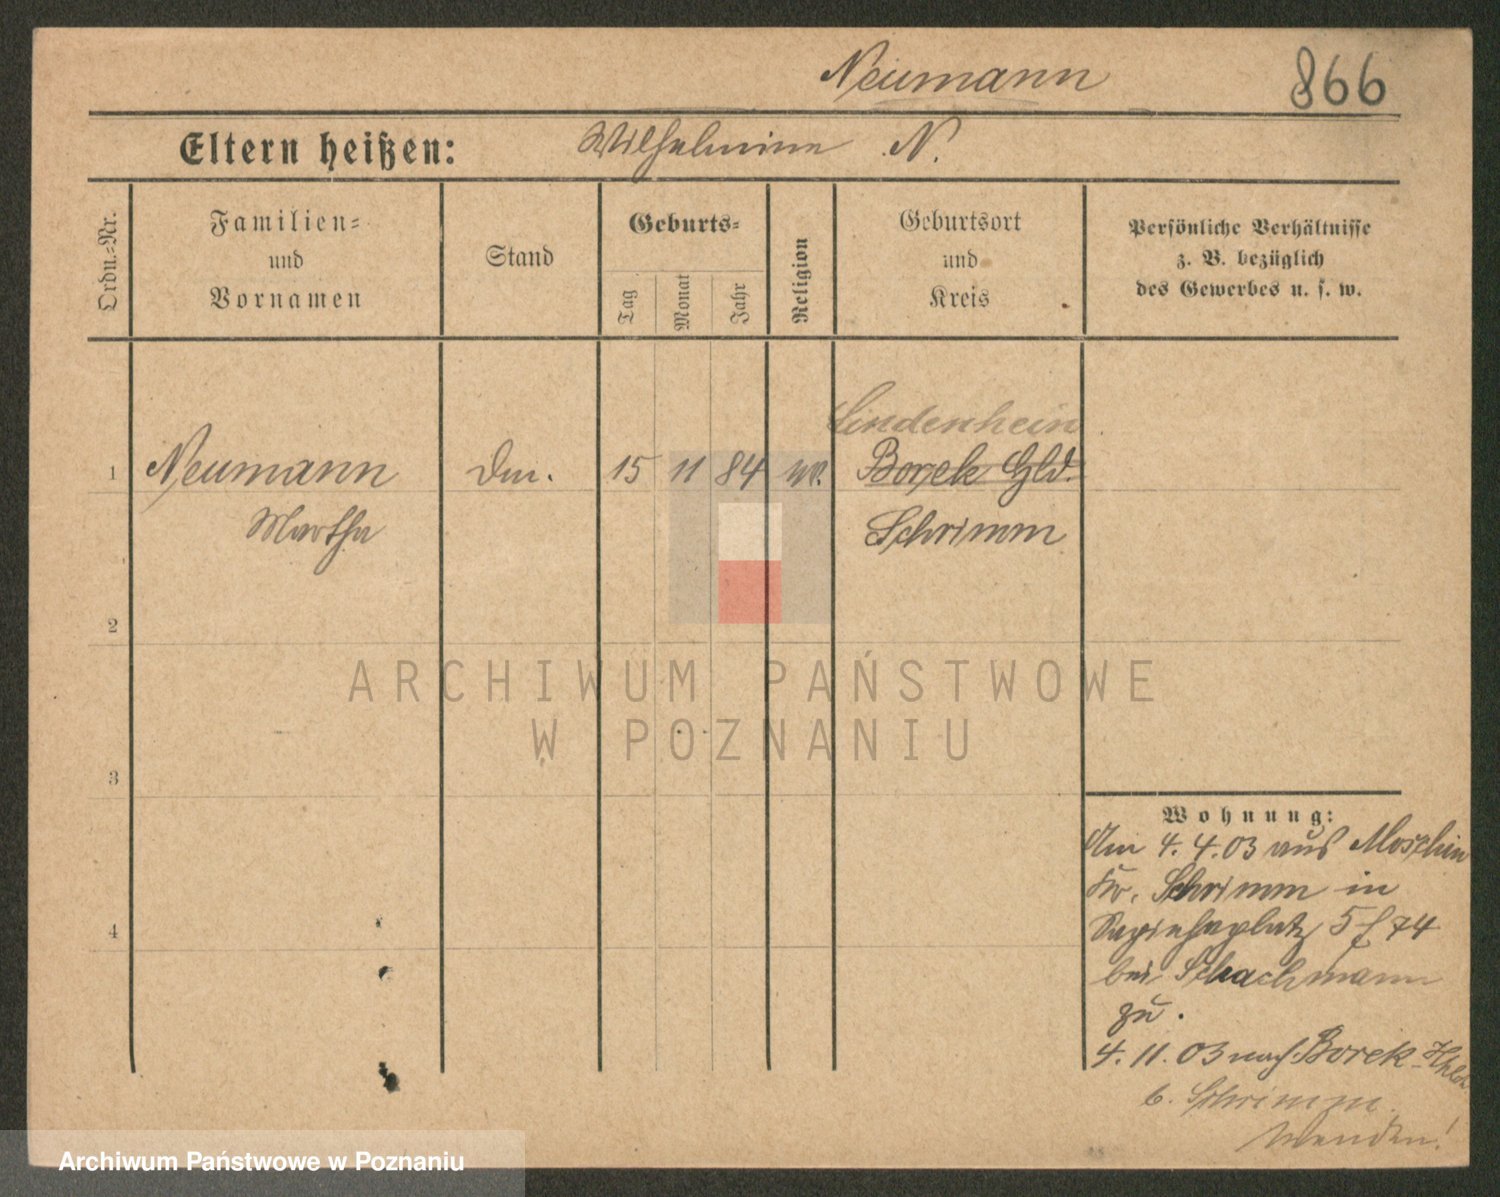 Neumann 866
Eltern heißen: Wilhelmine N.
Ordn.-Nr.
Familien-
und
Vornamen
Stand
Geburts-
Tag
Monat
Jahr
Religion
Geburtsort
und
Kreis
Persönliche Verhältnisse
z. B. bezüglich
des Gewerbes u. s. w.
Lindenhein
1 Neumann 15 11 84 Borek Gld.
Martha Schrimm
2
ARCHIWUM PAŃSTWOWE
W POZNANIU
3
Wohnung:
Am 4. 4. 03 aus Moschin
Kr. Schrimm in
4
Sapiehaplatz 5 74
bei Schachmann
zu.
4. 11. 03 nach Borek-
b. Schrimm.
Wenden!
Archiwum Państwowe w Poznaniu